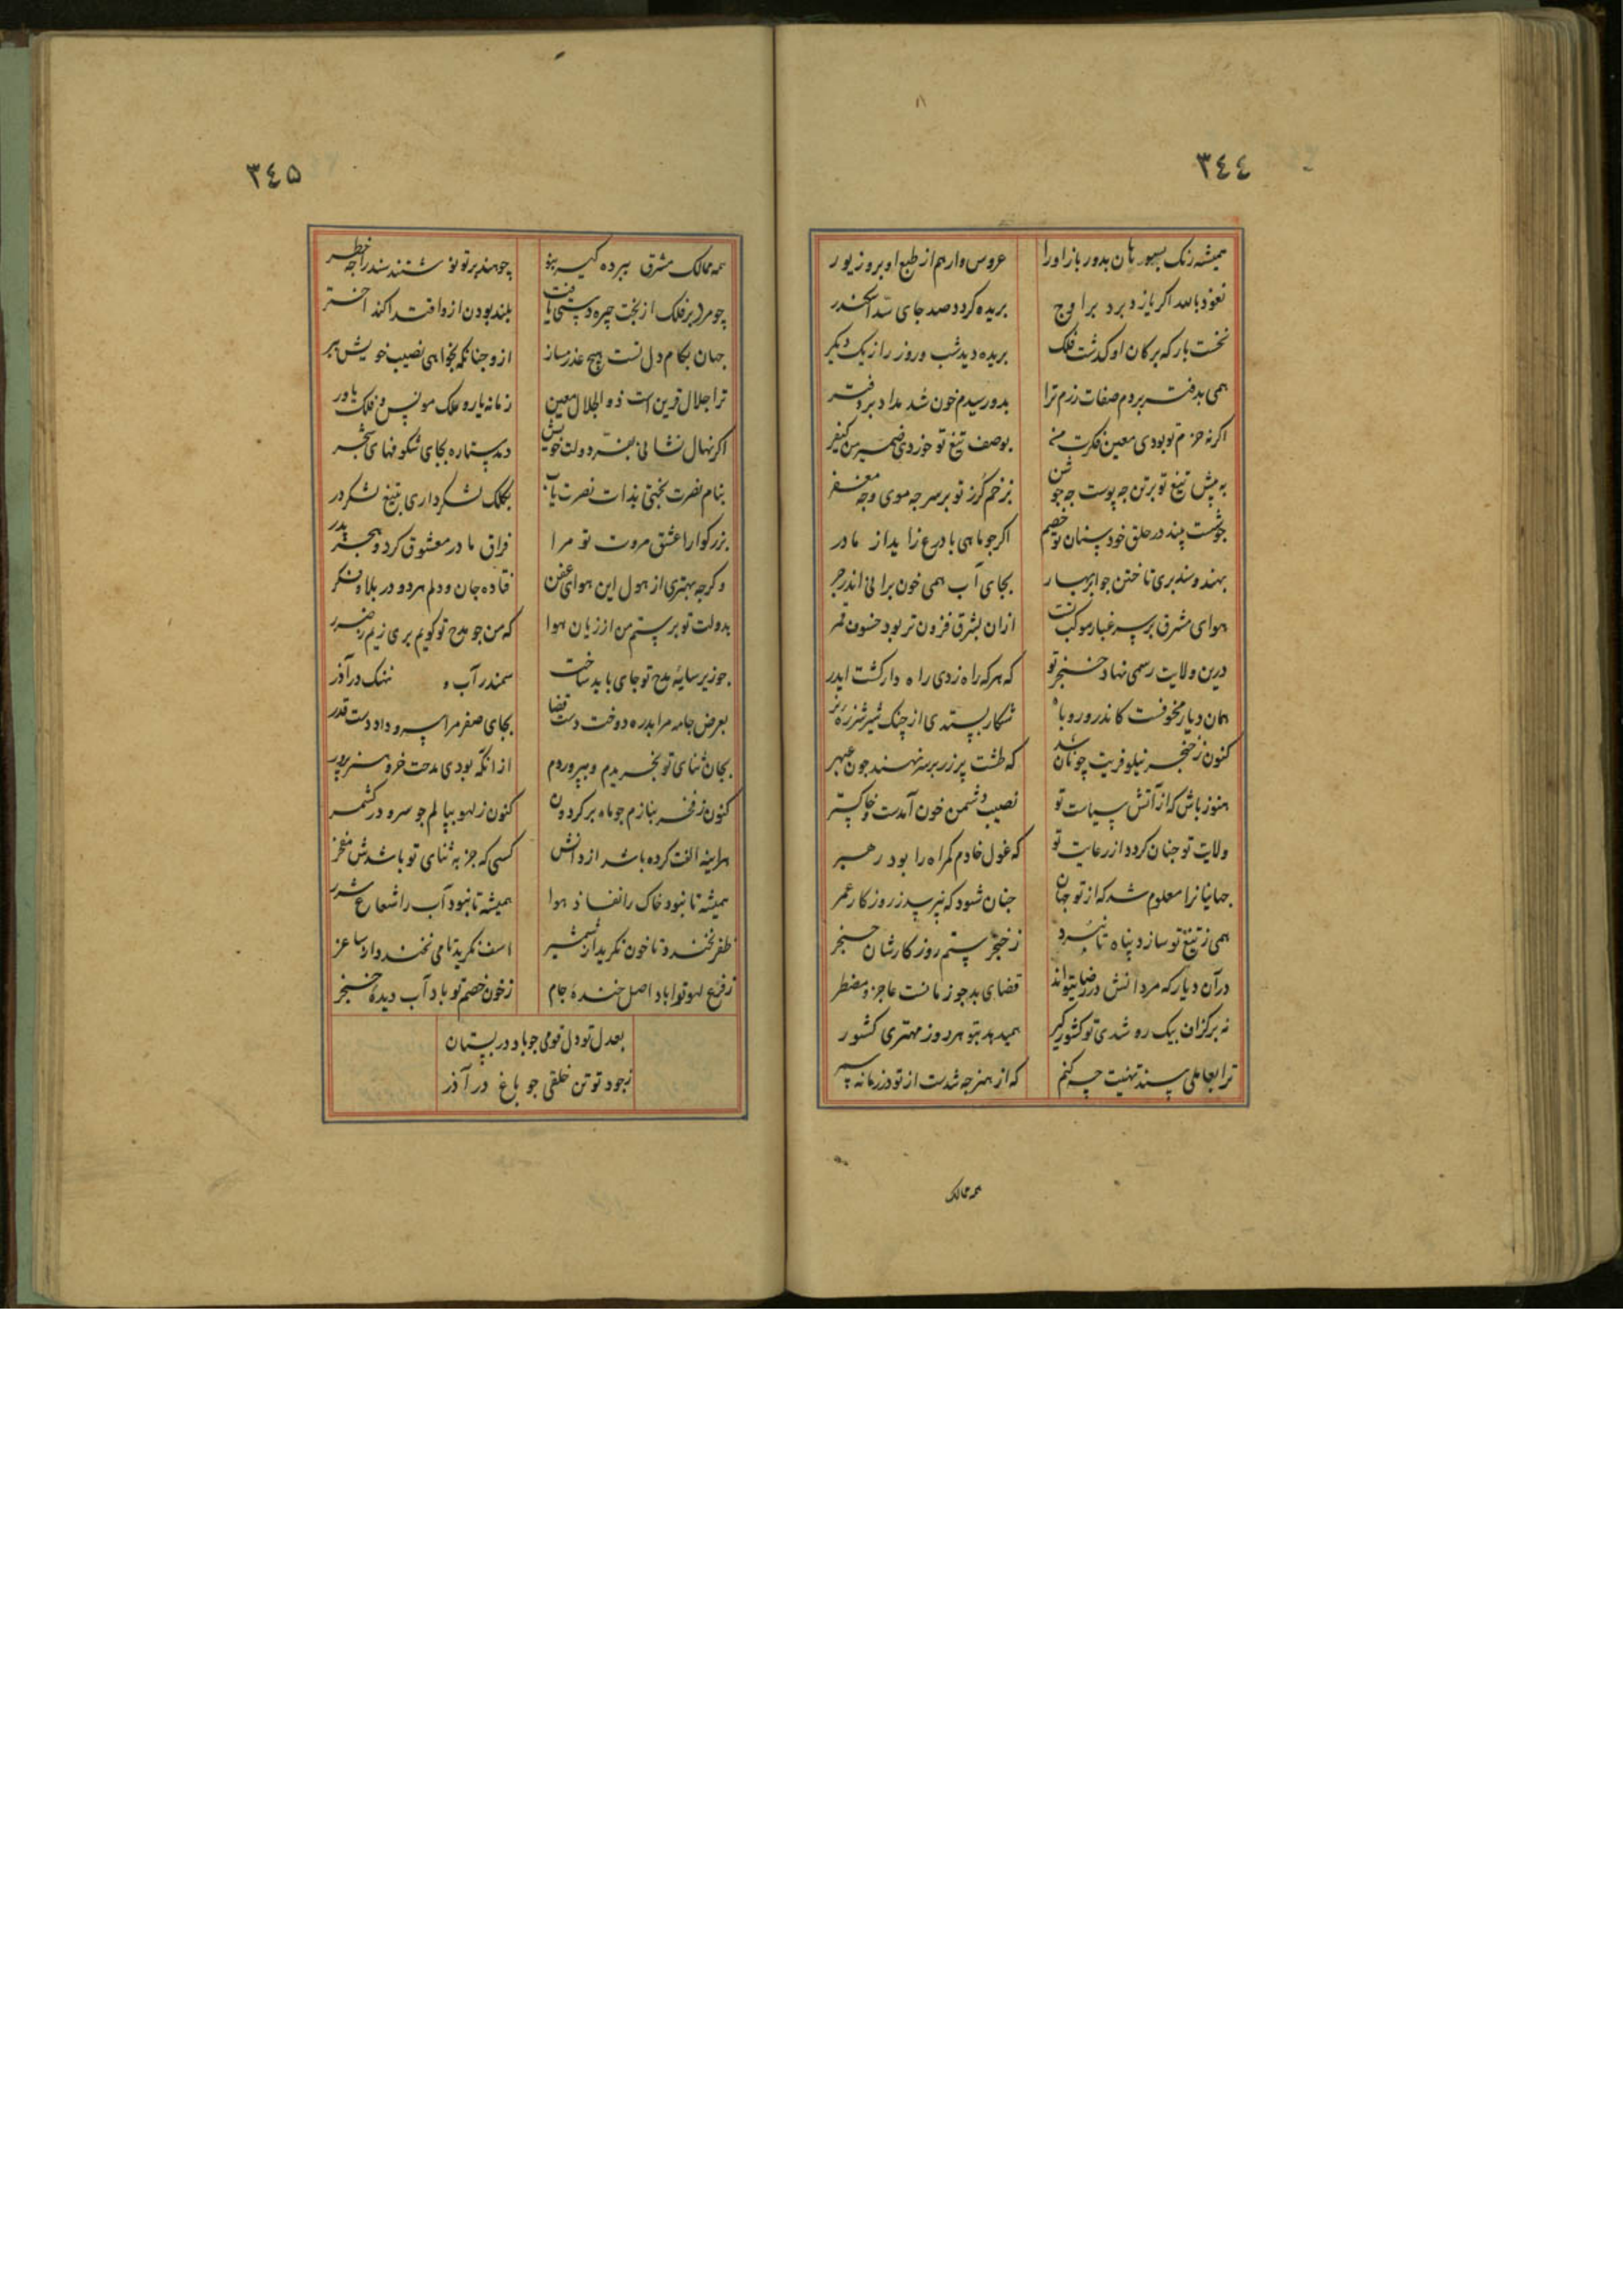 ٣٤٤
همیشه رنک بسپور هان بدور باز اورا عروس وار هم از طبع او بروزیور
نعوذ بالله اکر یازد برد بر اوج بریده کردد صد جای سد اسکندر
نخست بار که بر کان او کذشت فلک بریده دید شب و روز را ز یک دیکر
همی بدفتر بردم صفات رزم ترا بدو رسیدم خون شد مداد بر دفتر
اکر نه حزم تو بودی معین فکرت من بوصف تیغ تو خوردی ضمیر من کیفر
به پیش تیغ تو بر تن چه پوست چه جوشن بزخم کرز تو بر سر چه موی و چه مغفر
جوشت بیند در حلق خود سنان تو خصم اکر جو ماهی با درع زاید از مادر
بهند و سند بری تاختن جو ابر بهار بجای آب همی خون برانی اندر جر
هوای مشرق بر سر غبار موکب تست ازان بشرق فزون تر بود خسوف قمر
درین ولایت رسمی نهاد خنجر تو که هر که راه زدی راه دار کشت ایدر
همان دیار مخوفست کاندرو روباه شکار بستدی از چنک شیر شرزه نر
کنون ز خنجر نیلوفریت چونان شد که طشت پر زر بر سر نهند جون عبهر
هنوز باش که از آتش سیاست تو نصیب دشمن خون آمدست و خاکستر
ولایت تو جنان کردد از رعایت تو که غول خادم کمراه را بود رهبر
جهانیانرا معلوم شد که از تو جهان جنان شود که نپرسد ز روزکار عمر
همی ز تیغ تو سازد پناه تا نبرد ز خنجر ستم روزکارشان حنجر
در آن دیار که مردانش در رضای تواند قضای بد جو زمانست عاجز و مضطر
نه بر کزاف بیک ره شدی تو کشور کیر همیدهد بتو هر روز مهتری کشور
ترا بعاملی سند تهنیت چه کنم که از هنر چه شدست از تو در زمانه سمر
همه ممالک
٣٤٥
همه ممالک مشرق بپرده کیر بنو چو هند بر تو نوشتند سند را چه خطر
چو مرد بر فلک از بخت چیره دستی یافت بلند بودن ازو اقتدا کند اختر
جهان بکام دل تست هیچ عذر مساز ازو جنانکه بخواهی نصیب خویش ببر
ترا جلال قرین است ذو الجلال معین زمانه یار و ملک مونس و فلک یاور
اکر نهال نشانی بفر دولت خویش دمد ستاره بجای شکوفهای شجر
بنام نصرت بختی بذات نصرت یاب بکلک لشکر داری بتیغ لشکر در
بزرکوارا عشق مروت تو مرا فراق مادر معشوق کرد و هجر پدر
وکرچه بهتری از هول این هوای عفن فتاده جان و دلم هر دو در بلا و فکر
بدولت تو برستم من از زیان هوا که من جو مدح تو کویم بری زیم ز ضرر
جو زیر سایهٔ مدح تو جای باید ساخت سمندر آب و نهنک در آذر
بعرض جامه مرا بدره دوخت دست قضا بجای صفر مرا سیم داد دست قدر
بجان ثنای تو بخریدم و بپروردم ازانکه بودی مدحت خر و هنر پرور
کنون ز فخر بنازم جو ماه بر کردون کنون ز لهو ببالم جو سرو در کشمر
هراینه الفت کرده باشد از دانش کسی که جز به ثنای تو باشدش مفخر
همیشه تا نبود خاک را نفاذ هوا همیشه تا نبود آب را شعاع شرر
ظفر نخندد تا خون نکرید از شمشیر اسف نکرید تا می نخندد از ساغر
ز فرع لهو تو اباد اصل خندهٔ جام ز خون خصم تو باد آب دیدهٔ خنجر
بعدل تو دل قومی جو باد در بستان
بجود تو تن خلقی جو باغ در آذر